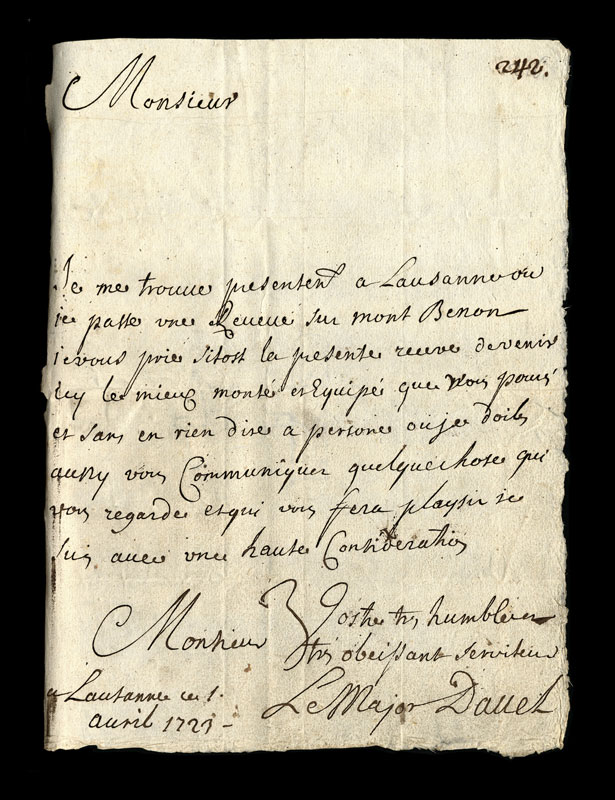 242.
Monsieur
Je me trouve presentent a Lausanne ou
je passe vne Reveue sur mont Benon
ie vous prie sitost la presente receve de venir
icy le mieux monté et Equipé que vous pouvés
et sans en rien dire a persone ou je doibs
aussy vous Communiquer quelque chose qui
vous regarde et qui vous fera playsir je
suis avec vne haute Consideration
Monsieur
Vostre trs humble et
trs obeissant serviteur
Le Major Davel
a Lausanne ce 1.
avril 1723